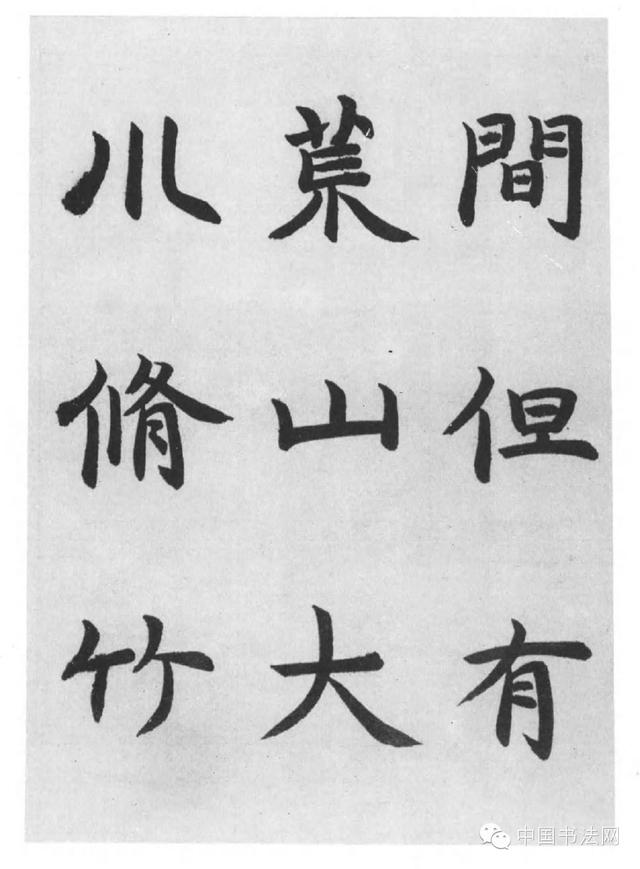 間但有
荒山大
川脩竹
中国书法网